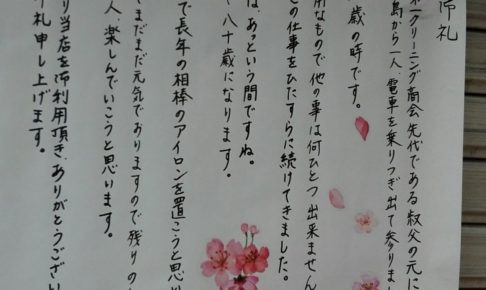 御礼
ークリーニング商会先代である叔父の元に
島から一人、電車を乗りつぎ出て参りまし
歳の時です。
用なもので他の事は何ひとつ出来ません
この仕事をひたすらに続けてきました。
は、あっという間ですね。
八十歳になります。
で長年の相棒のアイロンを置こうと思い
まだまだ元気でありますので残りの
人、楽しんでいこうと思います。
り当店を御利用頂き、ありがとうござい
御礼申し上げます。